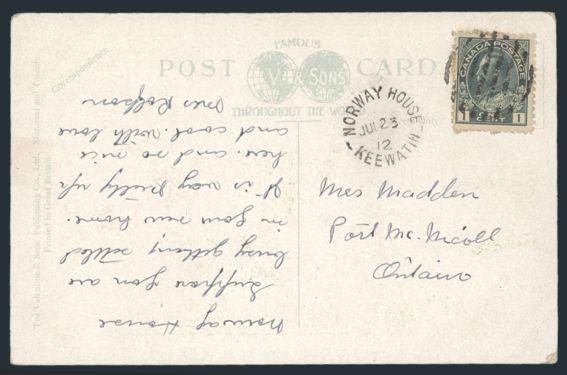 FAMOUS
POST CARD
V & SONS
THROUGHOUT THE WO
Correspondence.
The Valentine & Sons Publishing Co., Ltd., Montreal and Toronto.
Printed in Great Britain.
CANADA POSTAGE
1 CENT 1
NORWAY HOUSE
JUL 23
12
KEEWATIN
Mrs Madden
Port Mc. Nicoll
Ontario
Norway House
Suppose you are
busy getting settled
in your new home.
It is way pretty up
here. and so nice
and cool. with love
Mrs Robson